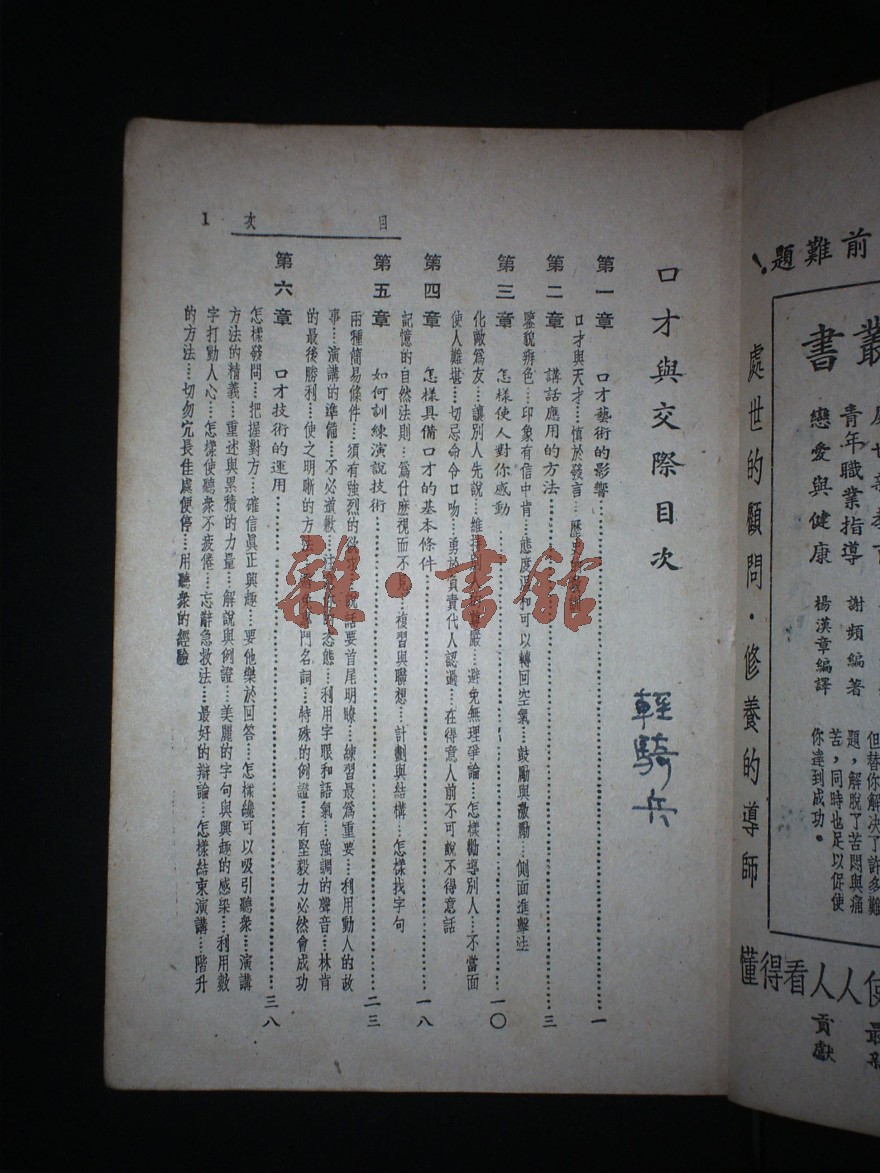 前難題！
叢書
青年職業指導 謝頻編著
戀愛與健康 楊漢章編譯
但替你解決了許多難
題，解脫了苦悶與痛
苦，同時也足以促使
你達到成功。
處世的顧問·修養的導師
人人看得懂
貢獻
口才與交際目次
輕騎兵
目次 1
第一章 口才藝術的影響……一
口才與天才……慎於發言……歷史
第二章 講話應用的方法……三
鑒貌辨色……印象有信中肯……態度溫和可以轉回空氣……鼓勵與激勵……側面進擊法
第三章 怎樣使人對你感動……一〇
化敵爲友……讓別人先說……維持……嚴……避免無理爭論……怎樣勸導別人……不當面
使人難堪……切忌命令口吻……勇於負責代人認過……在得意人前不可說不得意話
第四章 怎樣具備口才的基本條件……一八
記憶的自然法則……爲什麽視而不見……複習與聯想……計劃與結構……怎樣找字句
第五章 如何訓練演說技術……二三
兩種簡易條件……須有強烈的欲……說話要首尾明瞭……練習最爲重要……利用動人的故
事……演講的準備……不必道歉……注意……態……利用字眼和語氣……強調的聲音……林肯
的最後勝利……使之明晰的方法……門名詞……特殊的例證……有堅毅力必然會成功
第六章 口才技術的運用……三八
怎樣發問……把握對方……確信眞正興趣……要他樂於回答……怎樣纔可以吸引聽衆……演講
方法的精義……重述與累積的力量……解說與例證……美麗的字句與興趣的感染……利用數
字打動人心……怎樣使聽衆不疲倦……忘辭急救法……最好的辯論……怎樣結束演講……階升
的方法……切勿冗長佳處便停……用聽衆的經驗
雜·書館